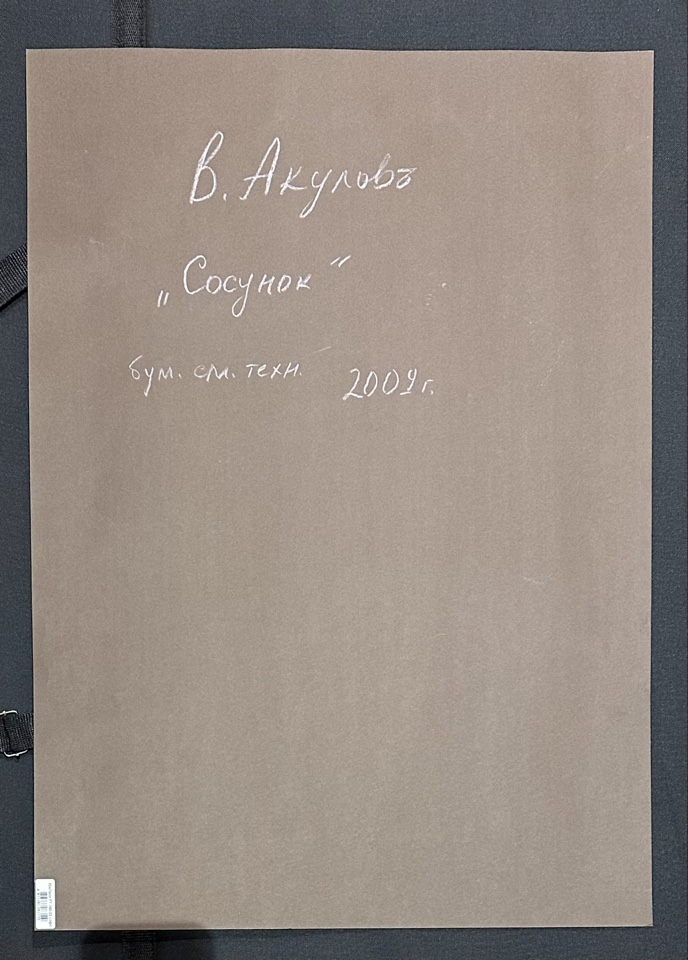 В. Акуловъ
„Сосунок“
бум. см. техн. 2009 г.